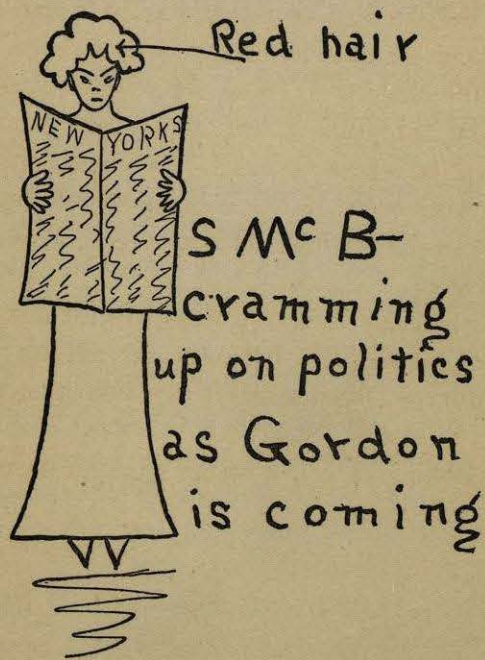 Red hair
NEW YORKS
S McB-
cramming
up on politics
as Gordon
is coming